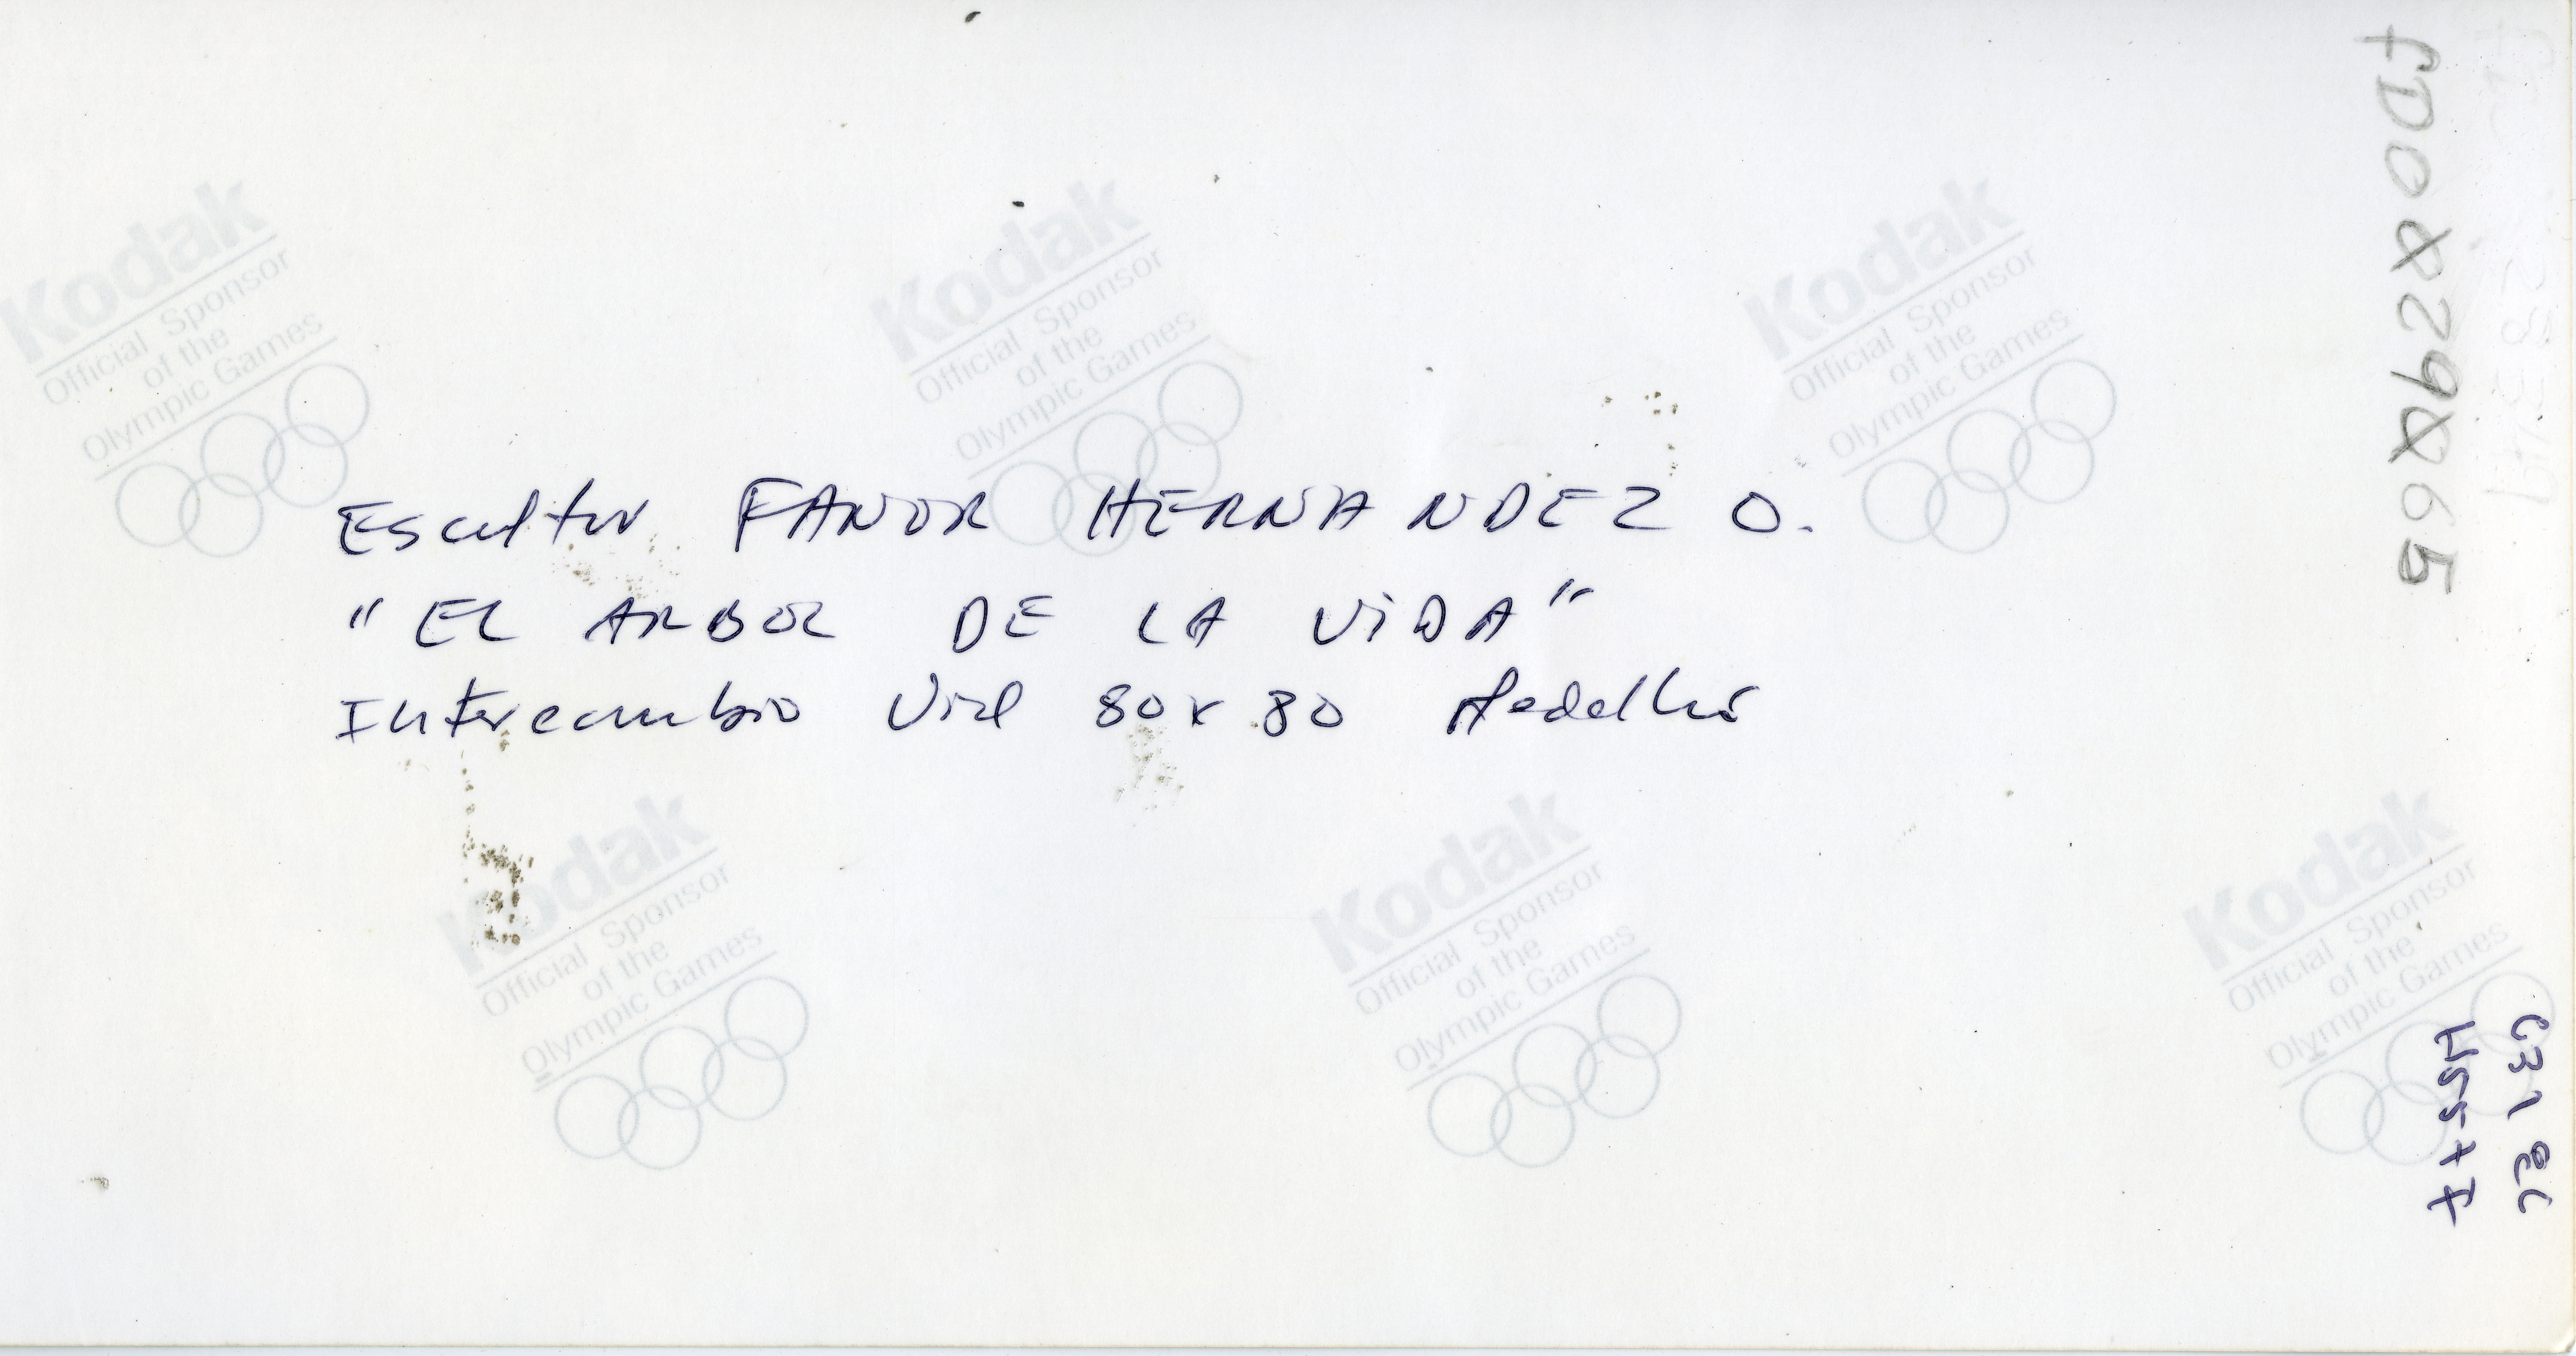 Escultor FANOR HERNANDEZ O.
"EL ARBOL DE LA ViDA"
Intercambio Vial 80 x 80 Medellin
Kodak
Official Sponsor
of the
Olympic Games
Kodak
Official Sponsor
of the
Olympic Games
Kodak
Official Sponsor
of the
Olympic Games
Kodak
Official Sponsor
of the
Olympic Games
Kodak
Official Sponsor
of the
Olympic Games
Kodak
Official Sponsor
of the
Olympic Games